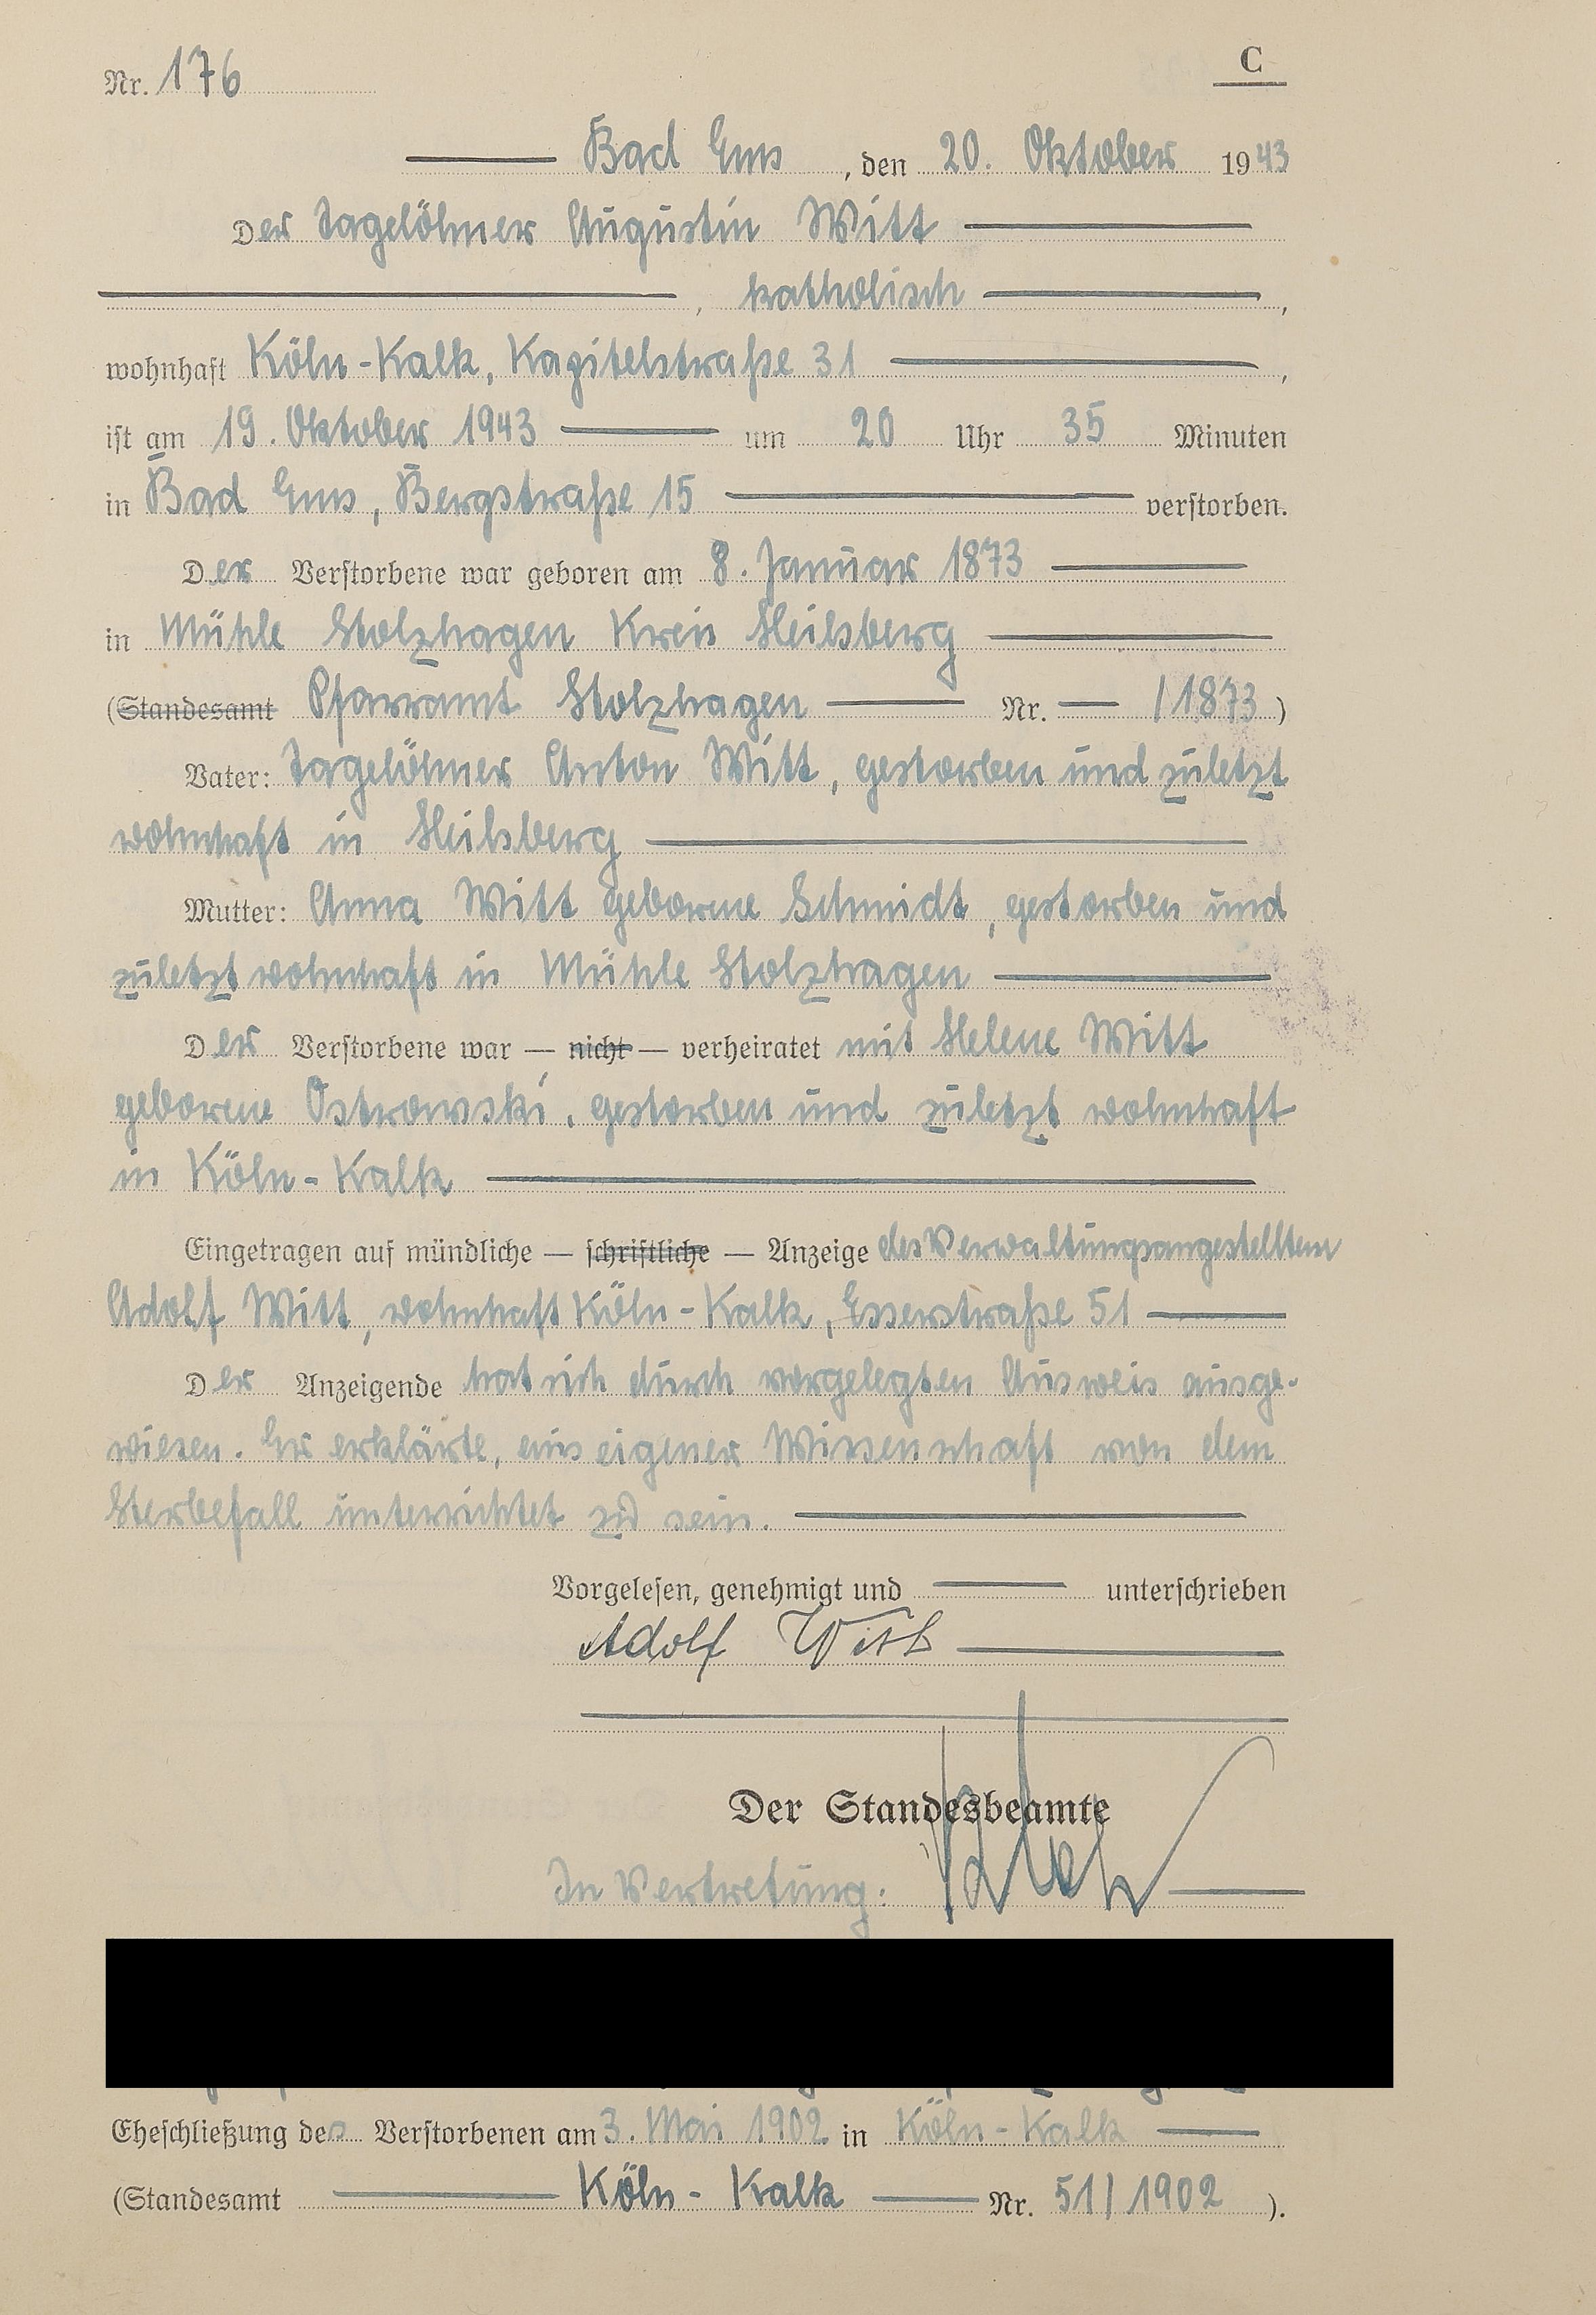 Nr. 176
C
Bad Ems, den 20. Oktober 1943
Der Tagelöhner Augustin Witt
, katholisch,
wohnhaft Köln-Kalk, Kapitelstraße 31,
ist am 19. Oktober 1943 um 20 Uhr 35 Minuten
in Bad Ems, Bergstraße 15 verstorben.
Der Verstorbene war geboren am 8. Januar 1873
in Mühle Stolzhagen Kreis Heilsberg
(Standesamt Pfarramt Stolzhagen Nr. — /1873)
Vater: Tagelöhner Anton Witt, gestorben und zuletzt
wohnhaft in Heilsberg
Mutter: Anna Witt geborene Schmidt, gestorben und
zuletzt wohnhaft in Mühle Stolzhagen
Der Verstorbene war — nicht — verheiratet mit Helene Witt
geborene Ostrowski, gestorben und zuletzt wohnhaft
in Köln-Kalk
Eingetragen auf mündliche — schriftliche — Anzeige des Verwaltungsangestellten
Adolf Witt, wohnhaft Köln-Kalk, Esserstraße 51
Der Anzeigende hat sich durch vorgelegten Ausweis ausge-
wiesen. Er erklärte, aus eigener Wissenschaft von dem
Sterbefall unterrichtet zu sein.
Vorgelesen, genehmigt und unterschrieben
Adolf Witt
Der Standesbeamte
In Vertretung:
Eheschließung des Verstorbenen am 3. Mai 1902 in Köln-Kalk
(Standesamt Köln-Kalk Nr. 51/1902).